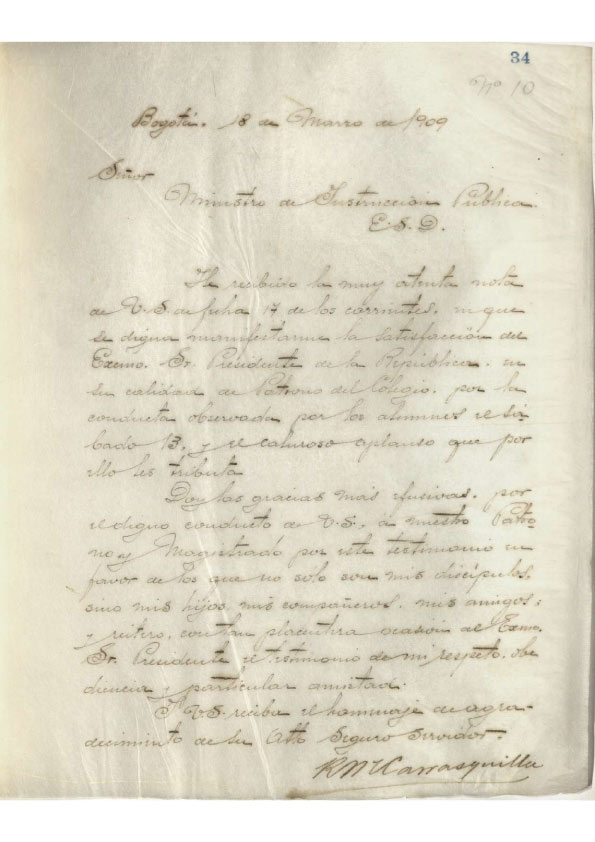 34
No 10
Bogotá. 18 de Marzo de 1909
Señor
Ministro de Instrucción Pública.
E. S. D.
He recibido la muy atenta nota
de V.S. de fecha 17 de los corrientes, en que
se digna manifestarme la satisfacción del
Exmo. Sr. Presidente de la República, en
su calidad de Patrono del Colegio, por la
conducta observada por los alumnos el sá-
bado 13, y el caluroso aplauso que por
ello les tributa
Doy las gracias más efusivas, por
el digno conducto de V.S., á nuestro Patro-
no y Magistrado por este testimonio en
favor de los que no sólo son mis discípulos,
sino mis hijos, mis compañeros, mis amigos;
y reitero, con tan placentera ocasión al Exmo.
Sr. Presidente el testimonio de mi respeto, obe
diencia y particular amistad.
V.S. reciba el homenaje de agra-
decimiento de su Atto Seguro Servidor.
R M Carrasquilla